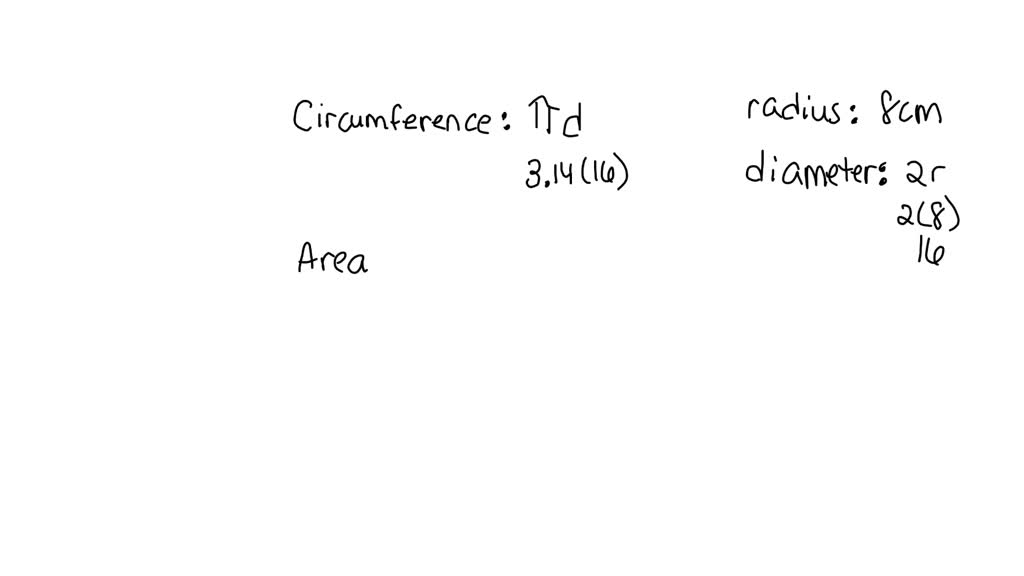 Circumference: πd
3.14(16)
Area
radius: 8cm
diameter: 2r
2(8)
16